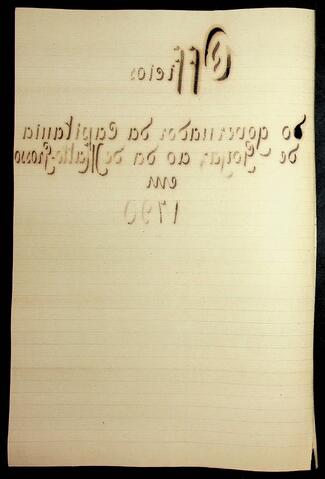 Officios
do governador da Capitania
de Goyaz, ao da de Matto-Grosso
em
1790